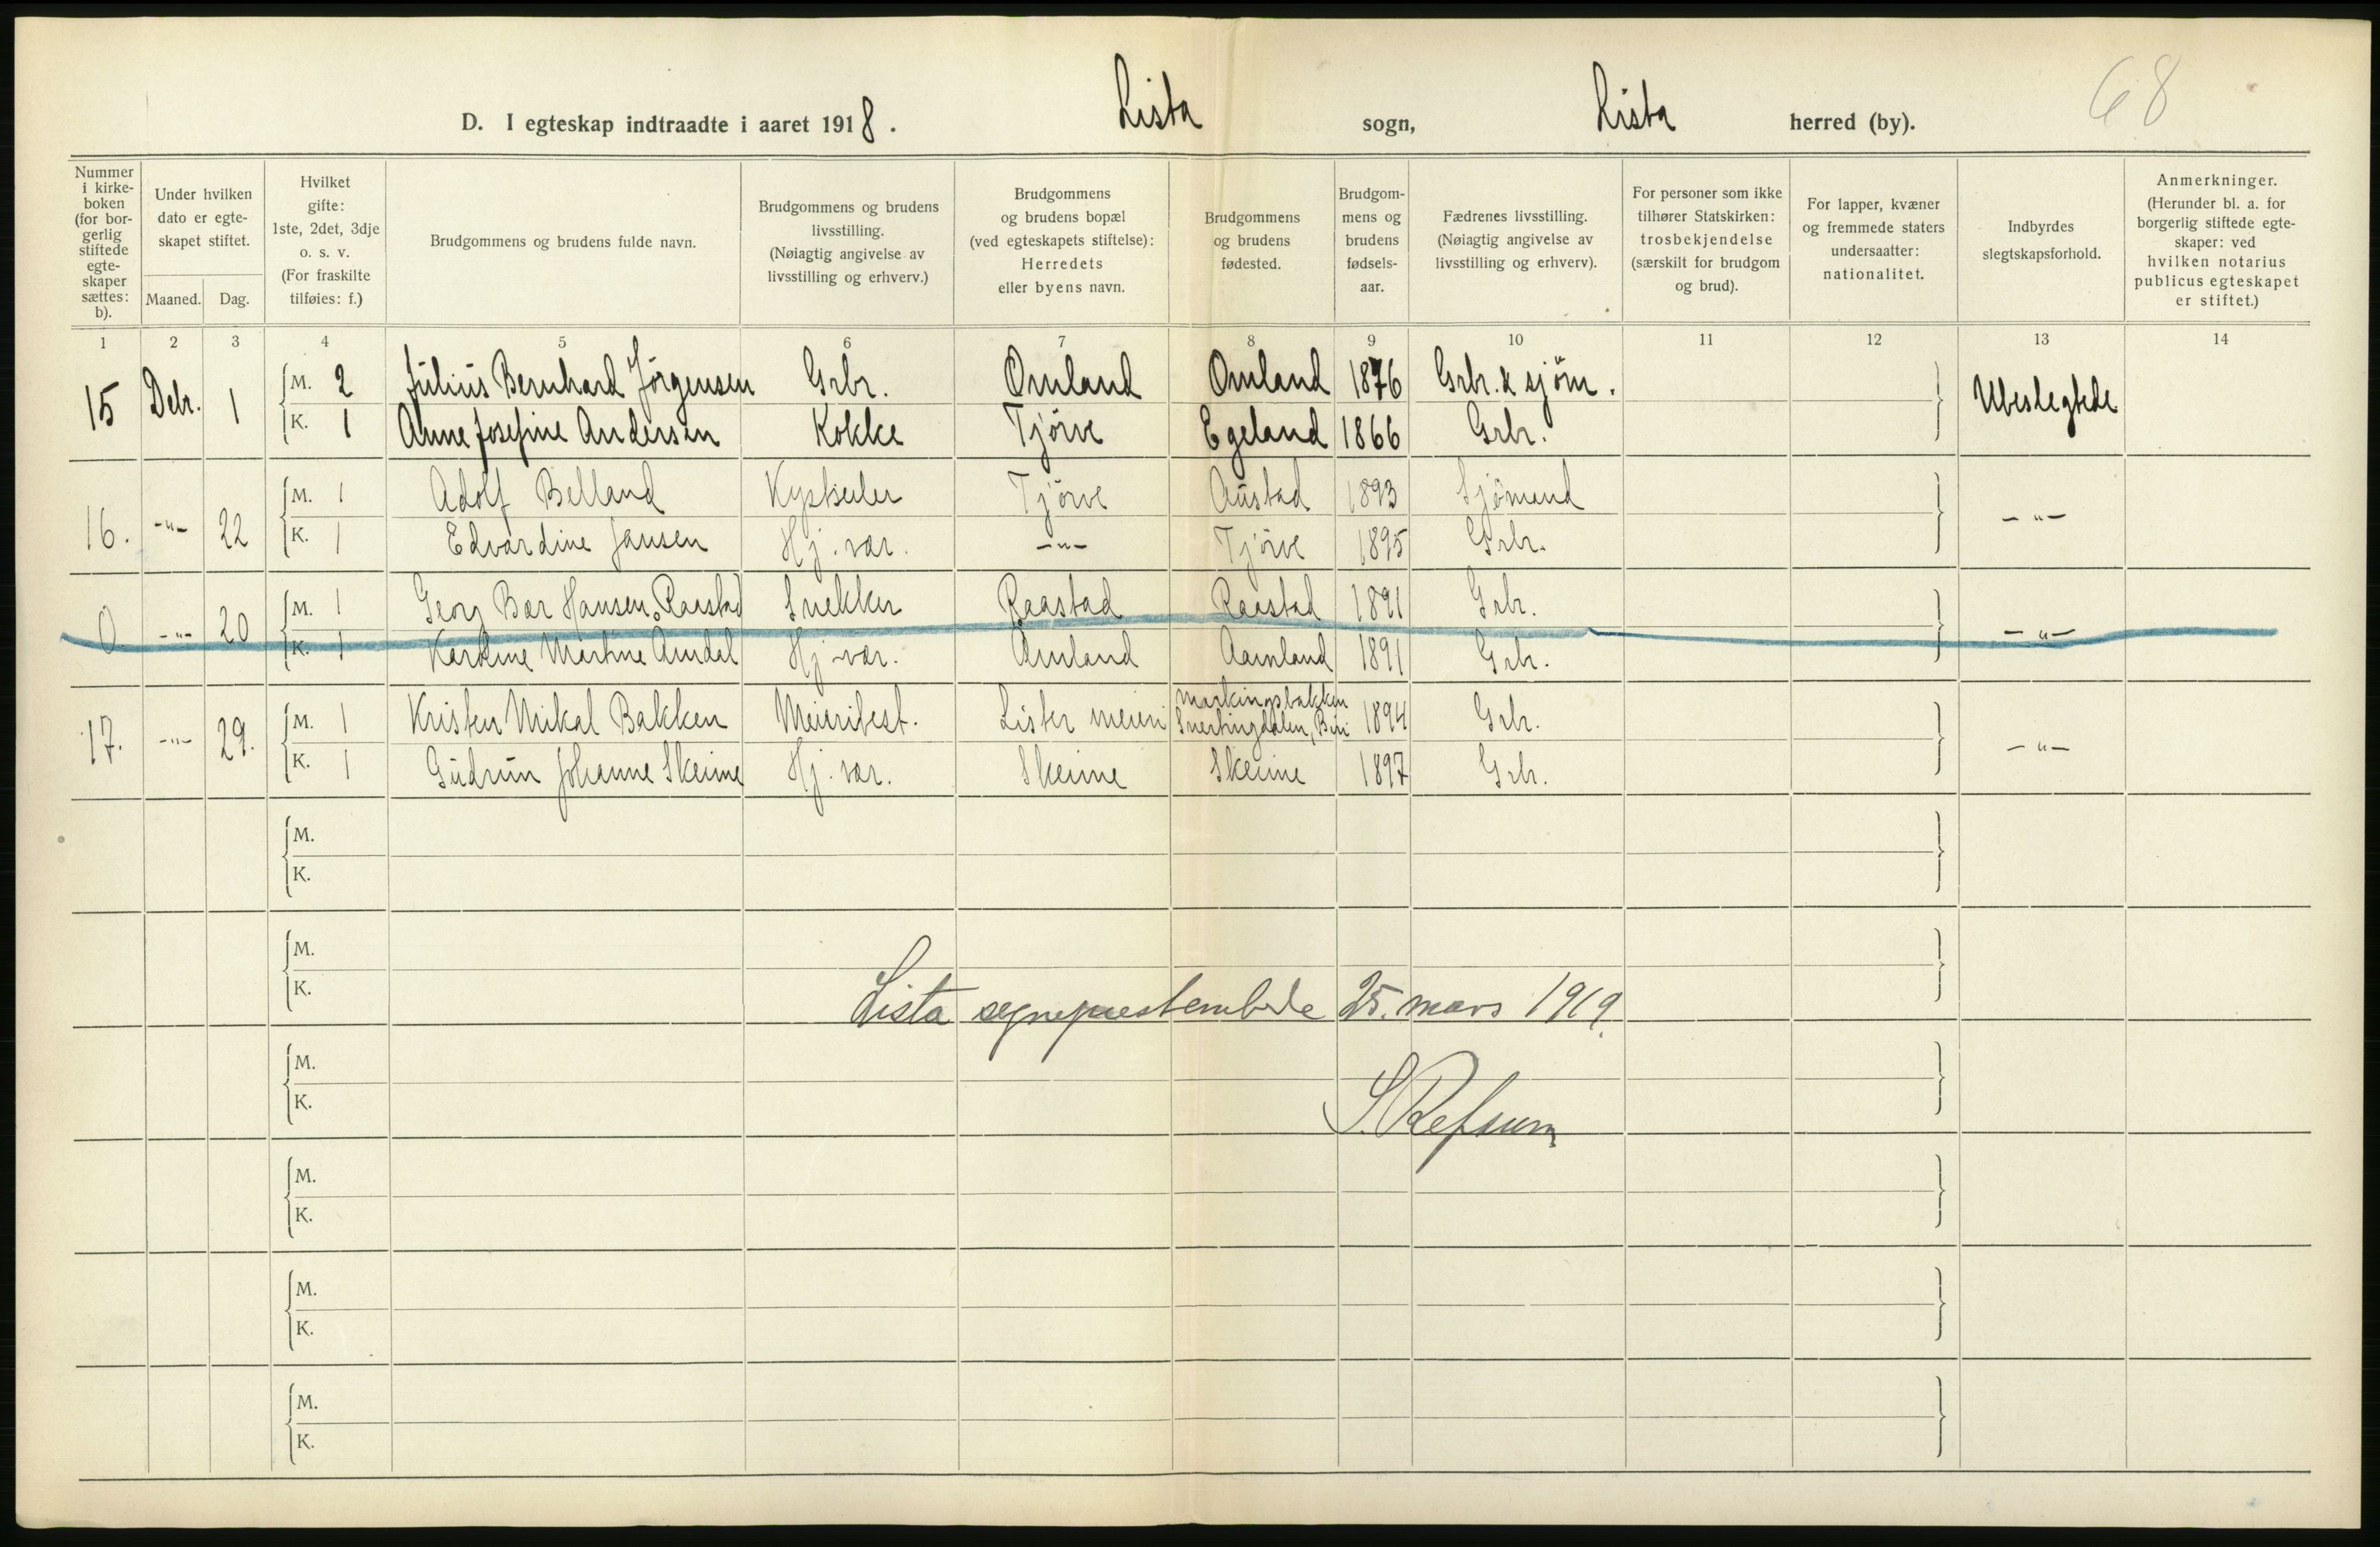 68
D. I egteskap indtraadte i aaret 1918. Lista sogn, Lista herred (by).
Nummer i kirke-boken (for bor-gerlig stiftede egte-skaper sættes: b).
Under hvilken dato er egte-skapet stiftet.
Maaned. Dag.
Hvilket gifte: 1ste, 2det, 3dje o. s. v. (For fraskilte tilføies: f.)
Brudgommens og brudens fulde navn.
Brudgommens og brudens livsstilling. (Nøiagtig angivelse av livsstilling og erhverv.)
Brudgommens og brudens bopæl (ved egteskapets stiftelse): Herredets eller byens navn.
Brudgommens og brudens fødested.
Brudgom-mens og brudens fødsels-aar.
Fædrenes livsstilling. (Nøiagtig angivelse av livsstilling og erhverv).
For personer som ikke tilhører Statskirken: trosbekjendelse (særskilt for brudgom og brud).
For lapper, kvæner og fremmede staters undersaatter: nationalitet.
Indbyrdes slegtskapsforhold.
Anmerkninger. (Herunder bl. a. for borgerlig stiftede egte-skaper: ved hvilken notarius publicus egteskapet er stiftet.)
1 2 3 4 5 6 7 8 9 10 11 12 13 14
15 Debr. 1 M. 2 Julius Bernhard Jörgensen Grbr. Omland Omland 1876 Grbr. & sjöm. Ubeslegtede
K. 1 Anne Josefine Andersen Kokke Tjörve Egeland 1866 Grbr.
16. -"- 22 M. 1 Adolf Belland Tjörve Austad 1893 Sjömand -"-
K. 1 Edvardine Jansen Hj. vær. -"- Tjörve 1895 Grbr.
0 -"- 20 M. 1 Georg Bær Hansen Raastad Snekker Raastad Raastad 1891 Grbr. -"-
K. 1 Karoline Martine Amdal Hj. vær. Amland Aamland 1891 Grbr.
17. -"- 29. M. 1 Kristen Mikal Bakken Meieribest. Lister meieri Markingsbakken Snertingdalen, Biri 1894 Grbr. -"-
K. 1 Gudrun Johanne Skeime Hj. vær. Skeime Skeime 1897 Grbr.
M.
K.
M.
K.
Lista sogneprestembede 25. mars 1919.
M.
K.
S. Refsum
M.
K.
M.
K.
M.
K.